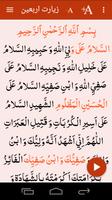 زيارت اربعين
بِسْمِ اللَّهِ الرَّحْمٰنِ الرَّحِيمِ
السَّلامُ عَلَى وَلِيِّ اللَّهِ وَحَبِيبِهِ السَّلامُ
عَلَى خَلِيلِ اللَّهِ وَنَجِيبِهِ السَّلامُ عَلَى
صَفِيِّ اللَّهِ وَابْنِ صَفِيِّهِ السَّلامُ عَلَى
الْحُسَيْنِ الْمَظْلُومِ الشَّهِيدِ السَّلامُ
عَلَى أَسِيرِ الْكُرُبَاتِ وَقَتِيلِ
الْعَبَرَاتِ اللَّهُمَّ إِنِّي أَشْهَدُ أَنَّهُ
وَلِيُّكَ وَابْنُ وَلِيِّكَ وَصَفِيُّكَ وَابْنُ